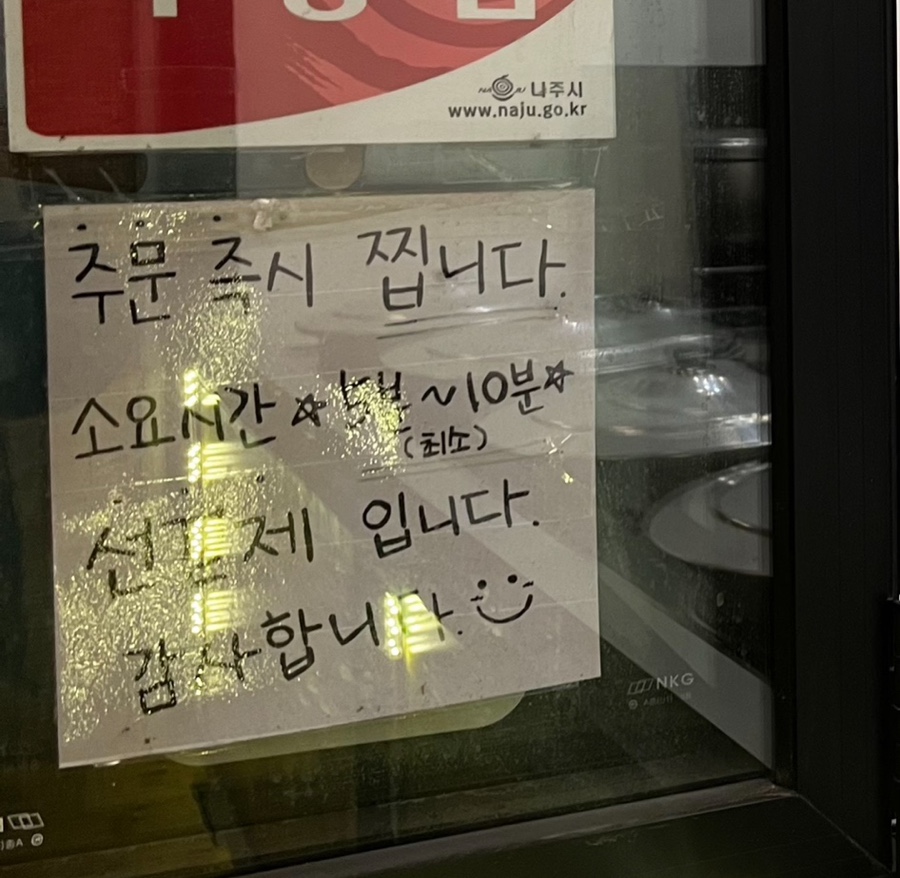 나주시
www.naju.go.kr
주문 즉시 찝니다.
소요시간 ☆ 5분 ~10분☆
(최소)
선결제 입니다.
감사합니다.
NKG